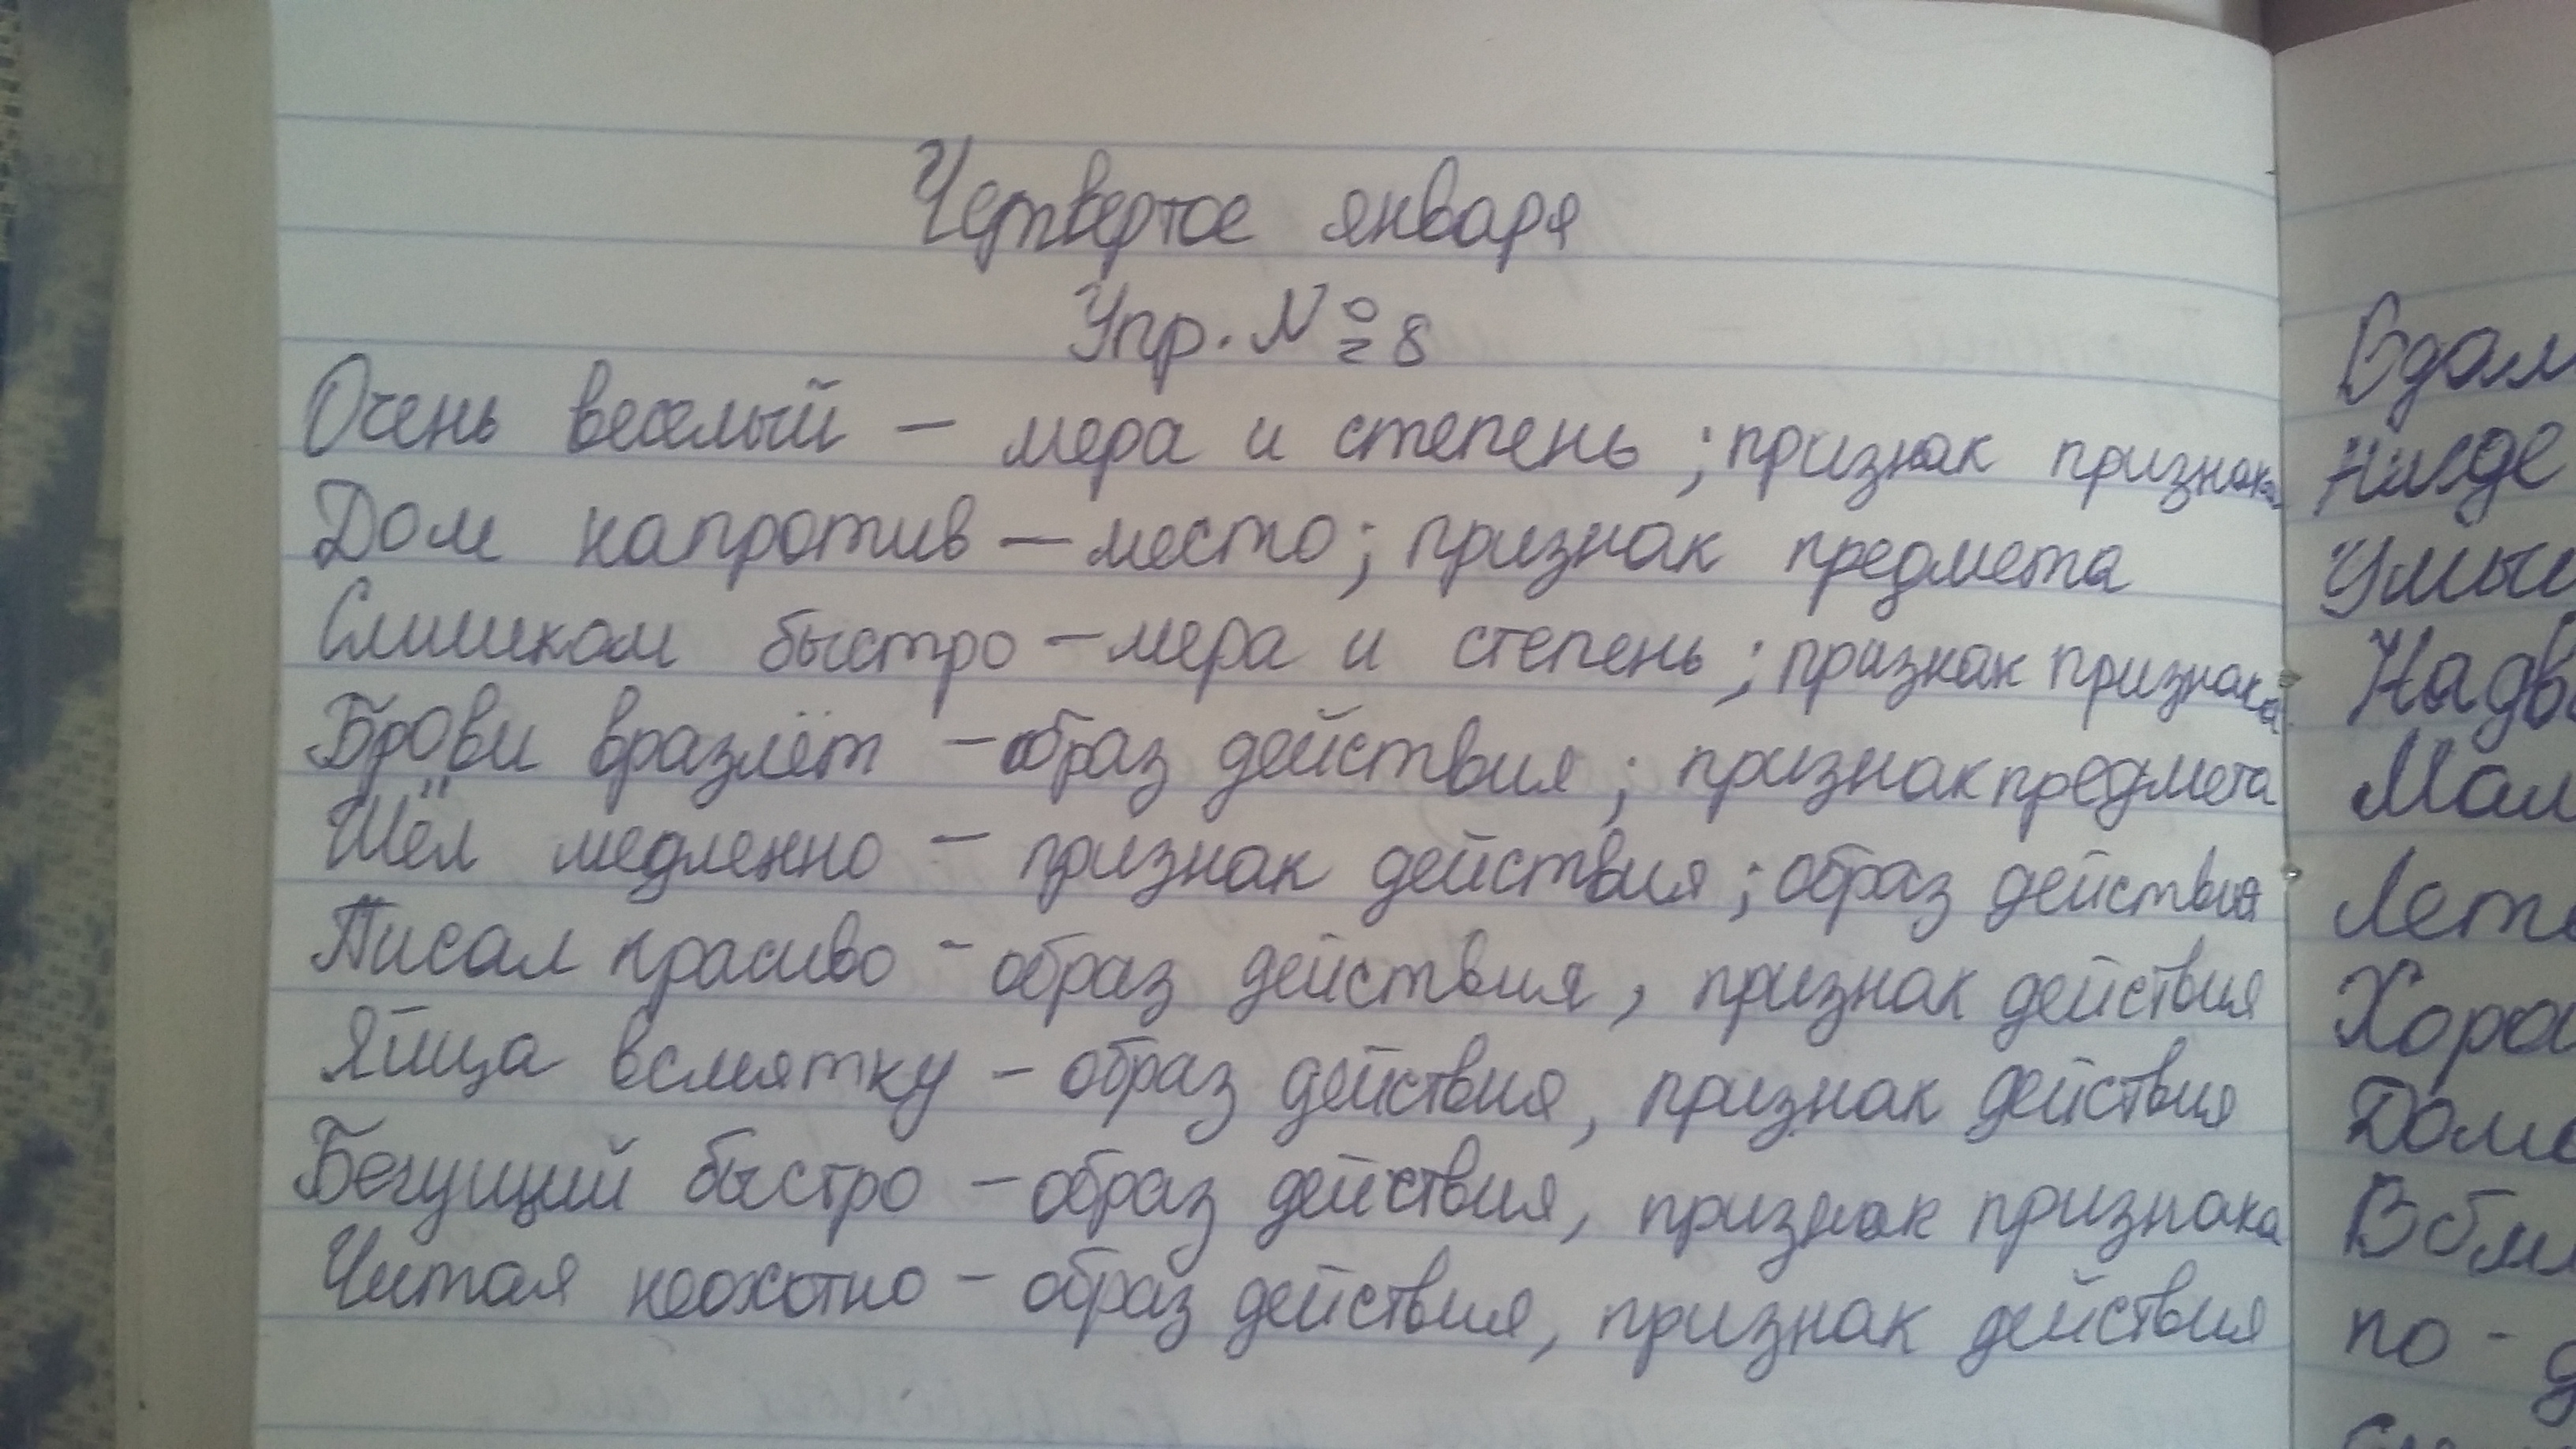 Четвертое января
Упр. № 8
Очень веселый — мера и степень ; признак признака
Дом напротив — место ; признак предмета
Слишком быстро — мера и степень ; признак признака
Брови вразлёт — образ действия ; признак предмета
Шёл медленно — признак действия ; образ действия
Писал красиво - образ действия , признак действия
Яйца всмятку - образ действия , признак действия
Бегущий быстро - образ действия , признак признака
Читая неохотно - образ действия , признак действия
по -